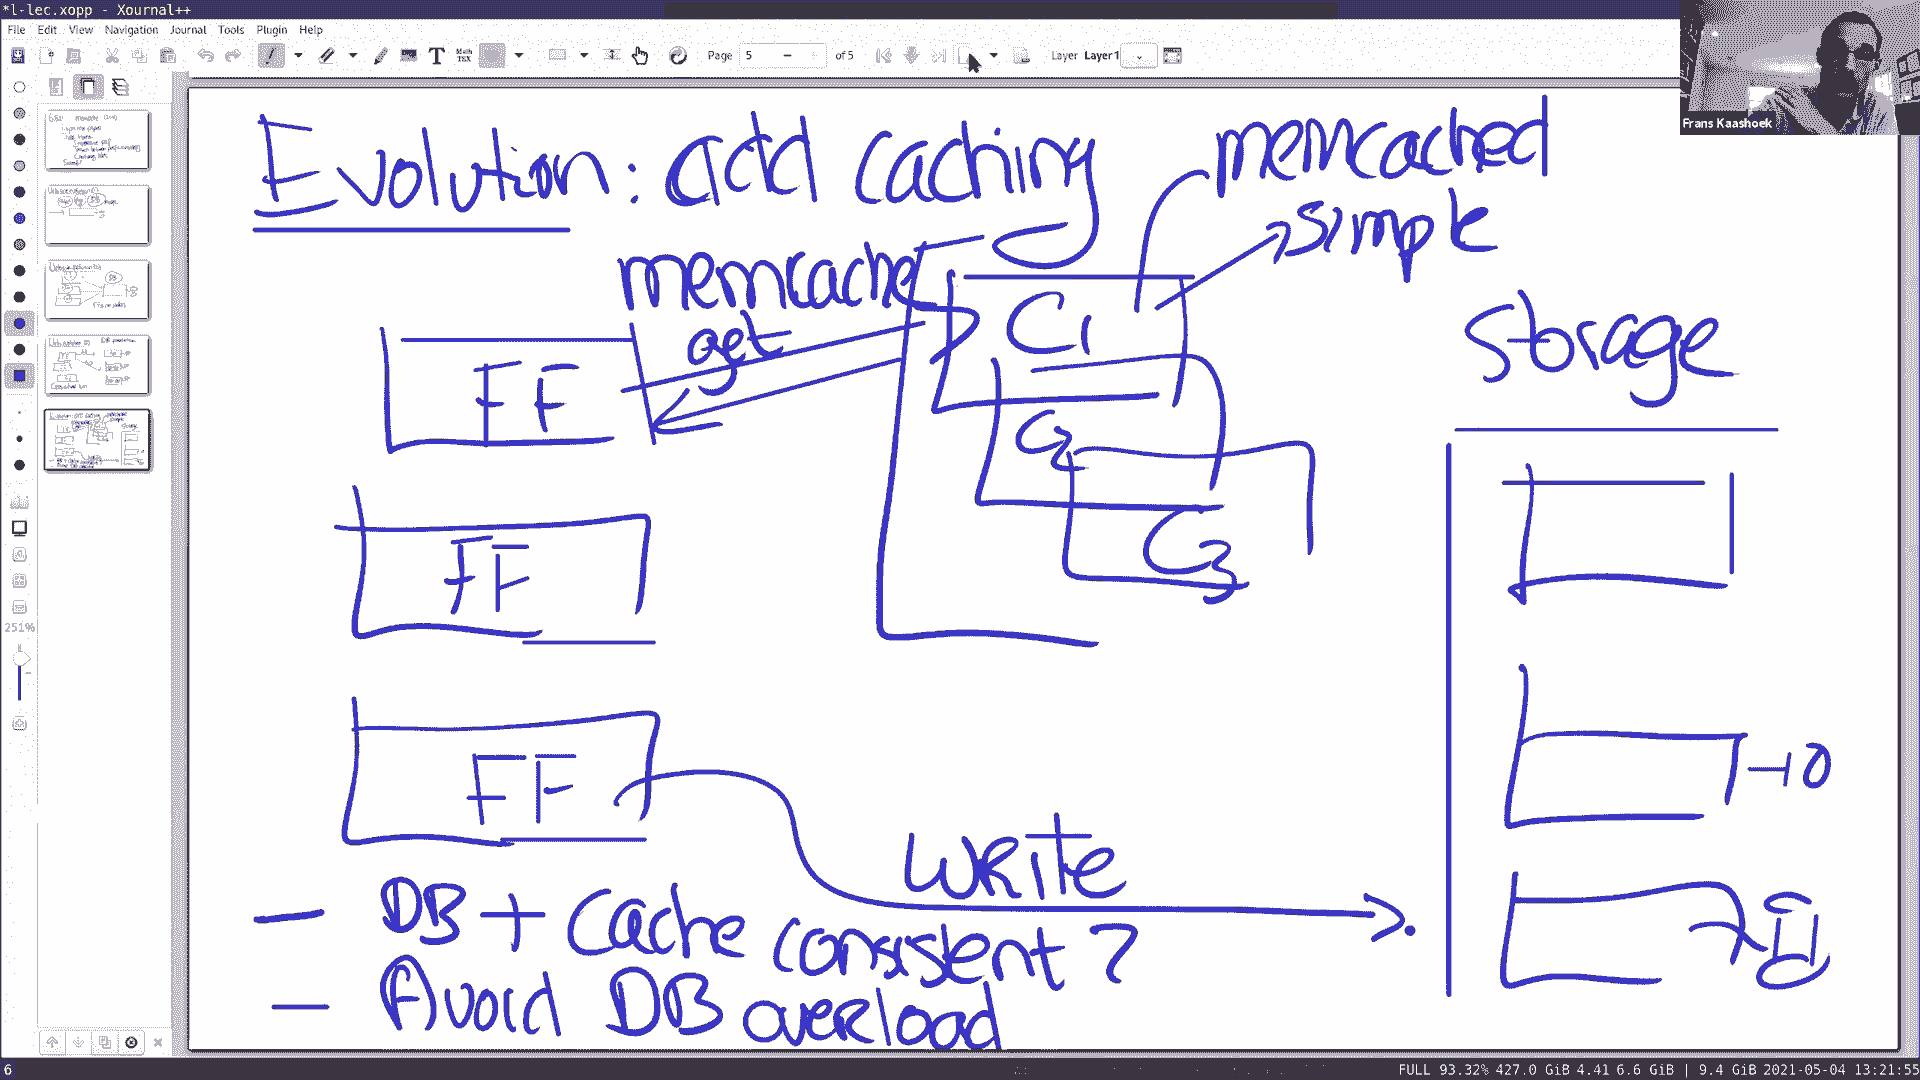 *l-lec.xopp - Xournal++
File Edit View Navigation Journal Tools Plugin Help
Page 5 of 5 Layer Layer1
Frans Kaashoek
251%
Evolution: add caching
memcached
simple
memcache
get
C1
C2
C3
Storage
FF
FF
FF
write
- DB + cache consistent?
- Avoid DB overload
6
FULL 93.32% 427.0 GiB 4.41 6.6 GiB | 9.4 GiB 2021-05-04 13:21:55